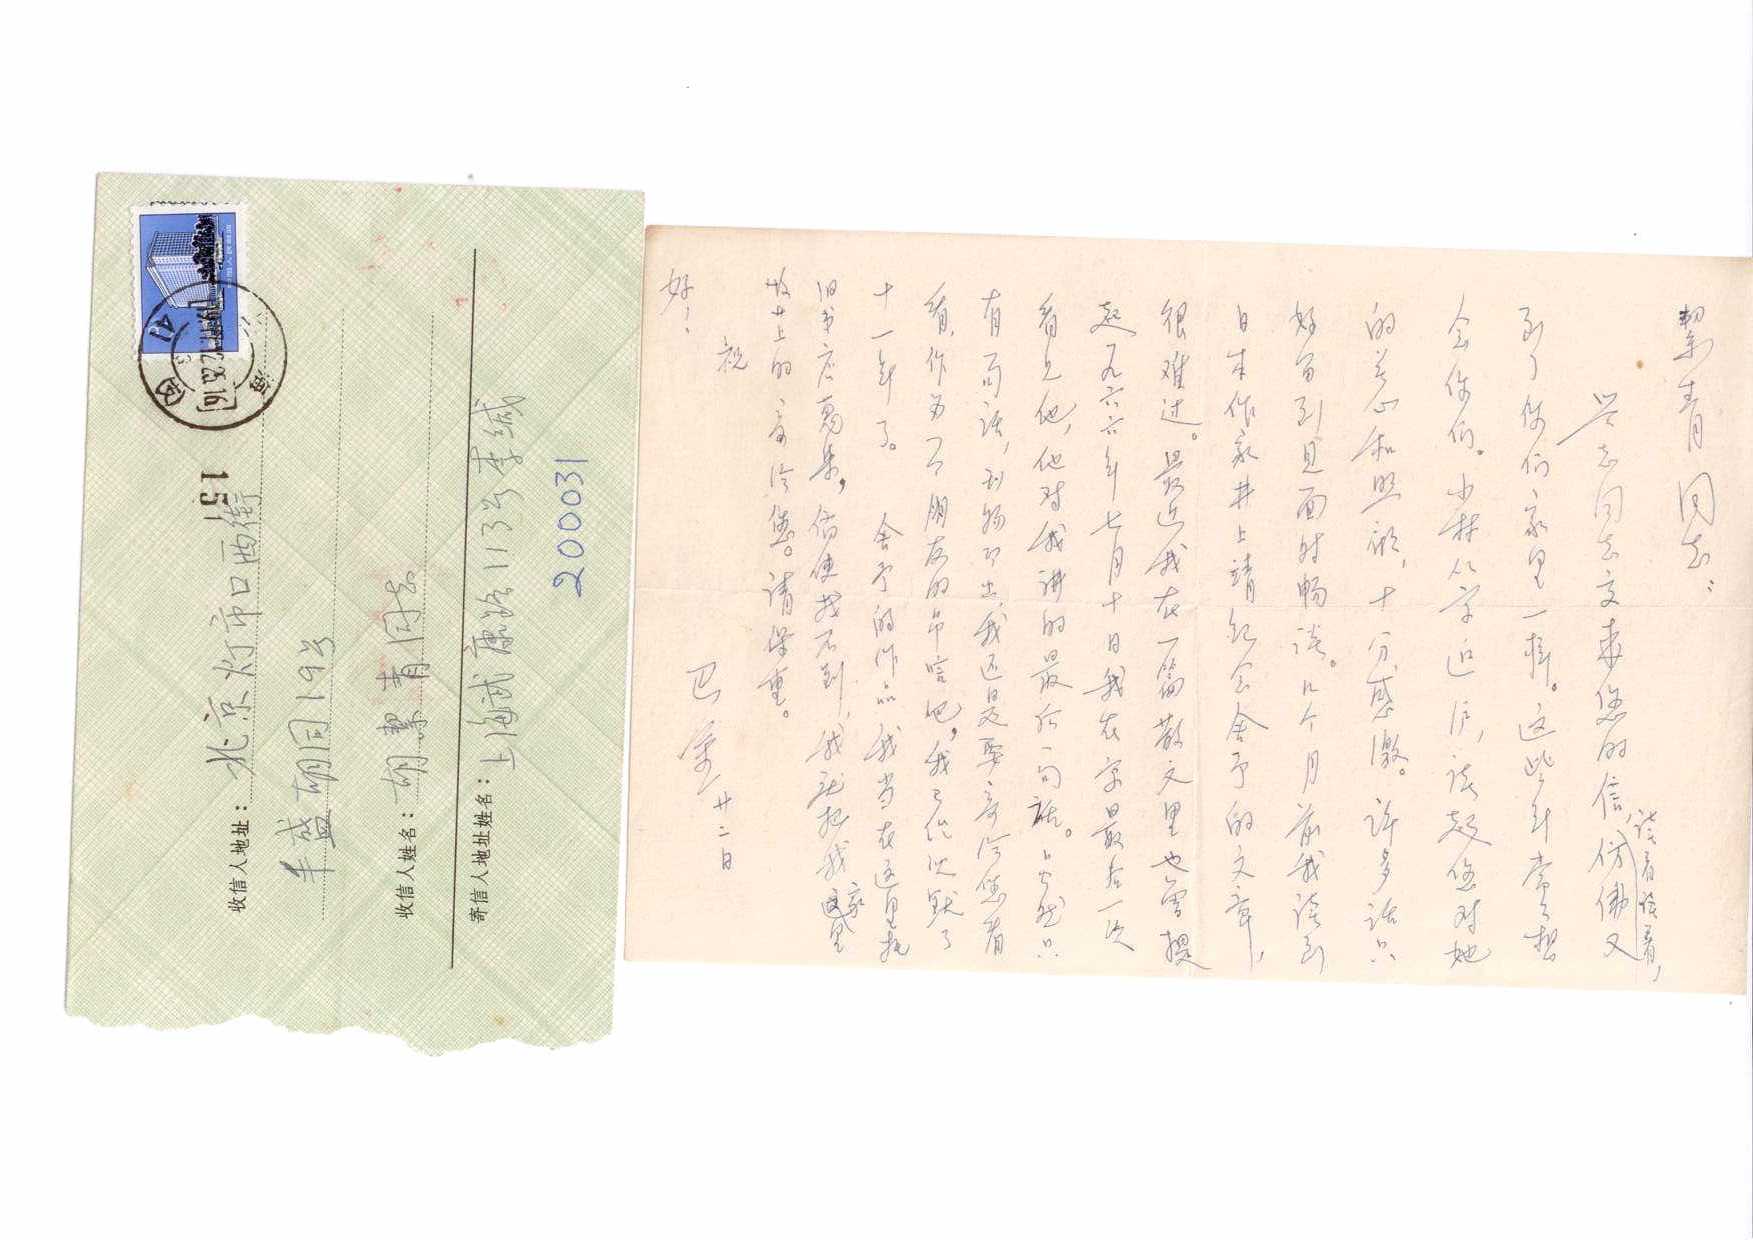 收信人地址：北京灯市口西街
丰盛胡同19号
收信人姓名：胡絜青同志
寄信人地址姓名：上海武康路113号李缄
200031
15
1977.12.23.16
上海
41
絜青同志：
兴志同志交来您的信，读着读着，仿佛又
到了你们家里一样。这些年常常想
念你们。小林从京返沪，谈起您对她
的关心和照顾，十分感激。许多话只
好留到见面时畅谈。几个月前我读到
日本作家井上靖纪念舍予的文章，
很难过。最近我在一篇散文里也曾提
起一九六六年七月十日我在京最后一次
看见他，他对我讲的最后一句话。虽然只
有两句话，刊物印出，我还是要寄给您看
看，作为一个朋友的吊唁吧。我已经沉默了
十一年了。 舍予的作品我当在这里托
旧书店蒐集，倘使找不到，我就把我家里
放着的寄给您。请保重。
祝
好！
巴金 廿二日